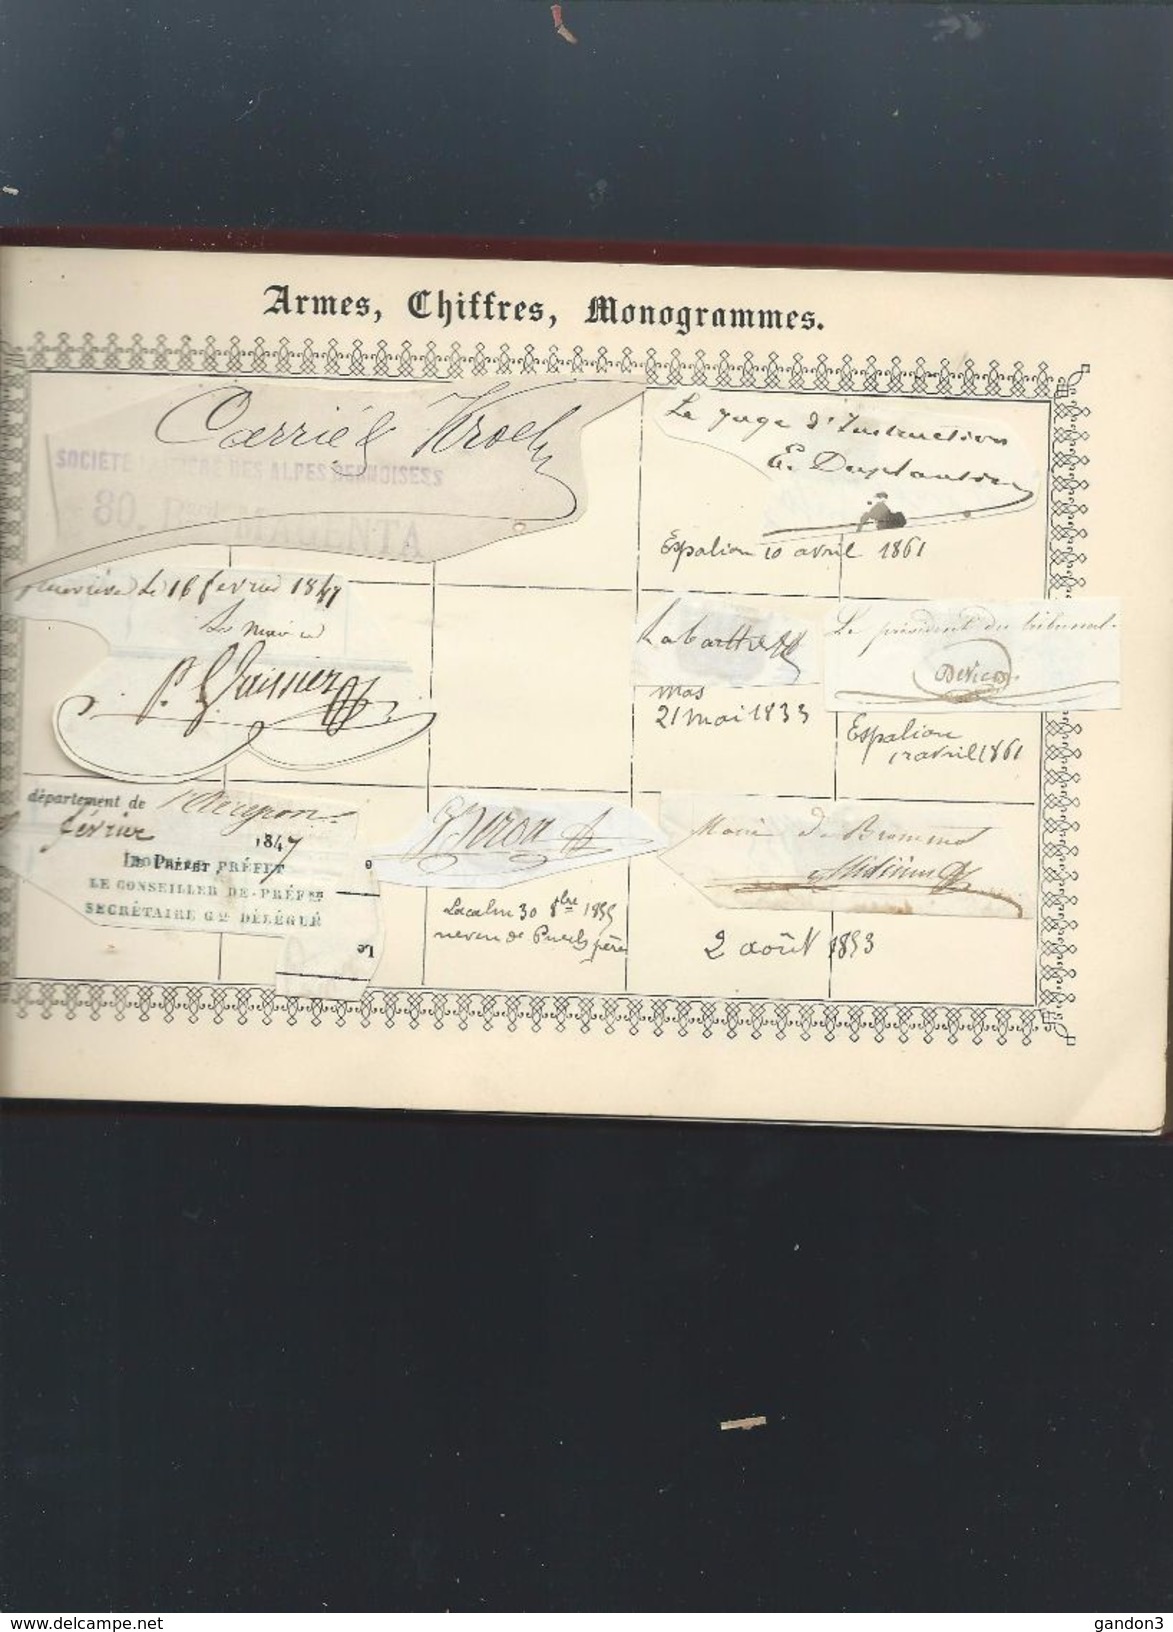 Armes, Chiffres, Monogrammes.
Carrié & Kroely
SOCIÉTÉ LAITIÈRE DES ALPES BERNOISES
80, Bard MAGENTA
Le juge d'Instruction
E. Duplantier
Espalion 10 avril 1861
Geneviève le 16 fevrier 1847
Le maire
P. Vaissier
Labarthe
mas
21 mai 1833
Le président du tribunal.
Devic
Espalion
avril 1861
département de l'Aveyron
fevrier 1847
LE PRÉFET
LE CONSEILLER DE PRÉFre
SECRÉTAIRE Gal DÉLÉGUÉ
Le
Biron
Lacalm 30 8bre 1855
neveu de Puech père
Maire de Brommat
2 août 1853
delcampe.net
gandon3